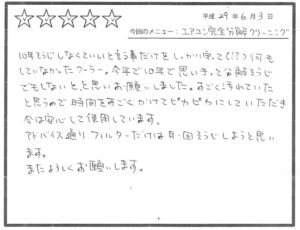 平成 29年6月3日
今回のメニュー：エアコン完全分解クリーニング
10年そうじしなくていいと言う事だけをしっかり守って(!?)何も
していなかったクーラー。今年で10年で思いきって分解そうじ
でもしないと、と思いお願いしました。すごく汚れていた
と思うので時間をすごくかけてピカピカにしていただき
今は安心して使用しています。
アドバイス通りフィルターだけは月1回そうじしようと思い
ます。
またよろしくお願いします。